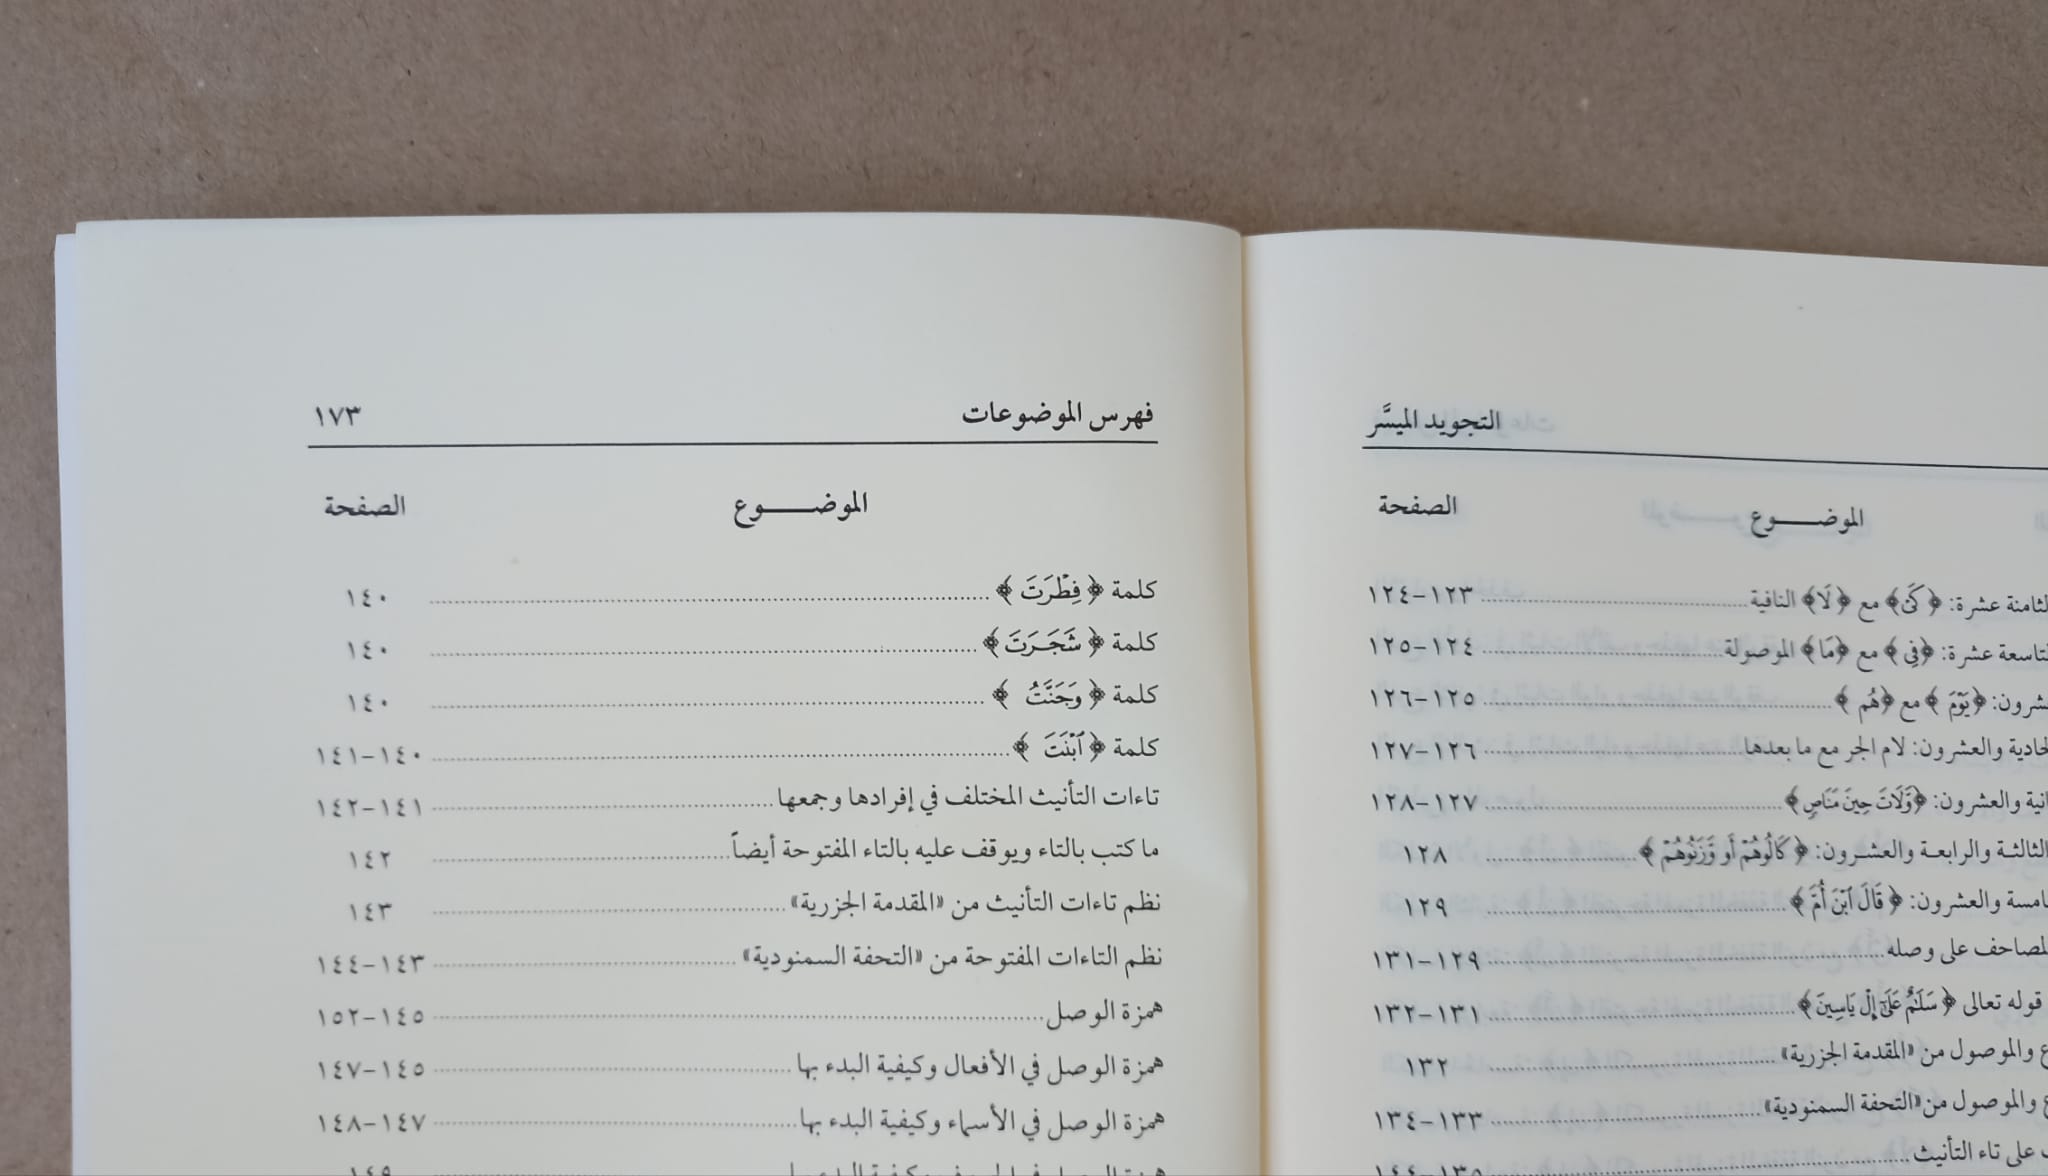 التجويد الميسَّر
الموضـــــوع الصفحة
الثامنة عشرة: ﴿كَىْ﴾ مع ﴿لَا﴾ النافية ١٢٣-١٢٤
التاسعة عشرة: ﴿فِي﴾ مع ﴿مَا﴾ الموصولة ١٢٤-١٢٥
﴿يَوْمَ﴾ مع ﴿هُم﴾ ١٢٥-١٢٦
والعشرون: لام الجر مع ما بعدها ١٢٦-١٢٧
والعشرون: ﴿وَّلَاتَ حِينَ مَنَاصٍ﴾ ١٢٧-١٢٨
الثالثة والرابعة والعشرون: ﴿كَالُوهُمْ أَو وَّزَنُوهُمْ﴾ ١٢٨
والعشرون: ﴿قَالَ ٱبْنَ أُمَّ﴾ ١٢٩
المصاحف على وصله ١٢٩-١٣١
قوله تعالى ﴿سَلَٰمٌ عَلَىٰٓ إِلْ يَاسِينَ﴾ ١٣١-١٣٢
والموصول من «المقدمة الجزرية» ١٣٢
والموصول من «التحفة السمنودية» ١٣٣-١٣٤
على تاء التأنيث ١٣٥-١٤٤
فهرس الموضوعات ١٧٣
الموضـــــوع الصفحة
كلمة ﴿فِطْرَتَ﴾ ١٤٠
كلمة ﴿شَجَرَتَ﴾ ١٤٠
كلمة ﴿وَجَنَّتُ﴾ ١٤٠
كلمة ﴿ٱبْنَتَ﴾ ١٤٠-١٤١
تاءات التأنيث المختلف في إفرادها وجمعها ١٤١-١٤٢
ما كتب بالتاء ويوقف عليه بالتاء المفتوحة أيضاً ١٤٢
نظم تاءات التأنيث من «المقدمة الجزرية» ١٤٣
نظم التاءات المفتوحة من «التحفة السمنودية» ١٤٣-١٤٤
همزة الوصل ١٤٥-١٥٢
همزة الوصل في الأفعال وكيفية البدء بها ١٤٥-١٤٧
همزة الوصل في الأسماء وكيفية البدء بها ١٤٧-١٤٨
همزة الوصل في الحروف وكيفية البدء بها ١٤٩